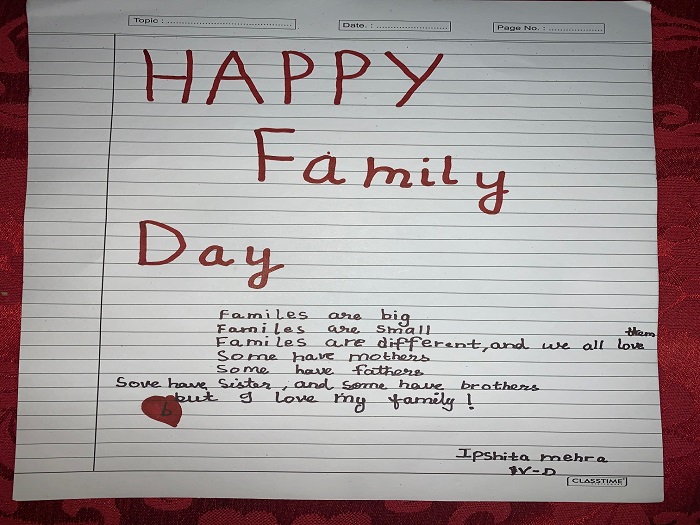 Topic : ........................................ Date. : ........................... Page No. : ....................
HAPPY
Family
Day
Familes are big
Familes are small
Familes are different, and we all love them
Some have mothers
Some have fathers
Sove have Sister, and some have brothers
but I love my family!
Ipshita mehra
IV-D
CLASSTIME